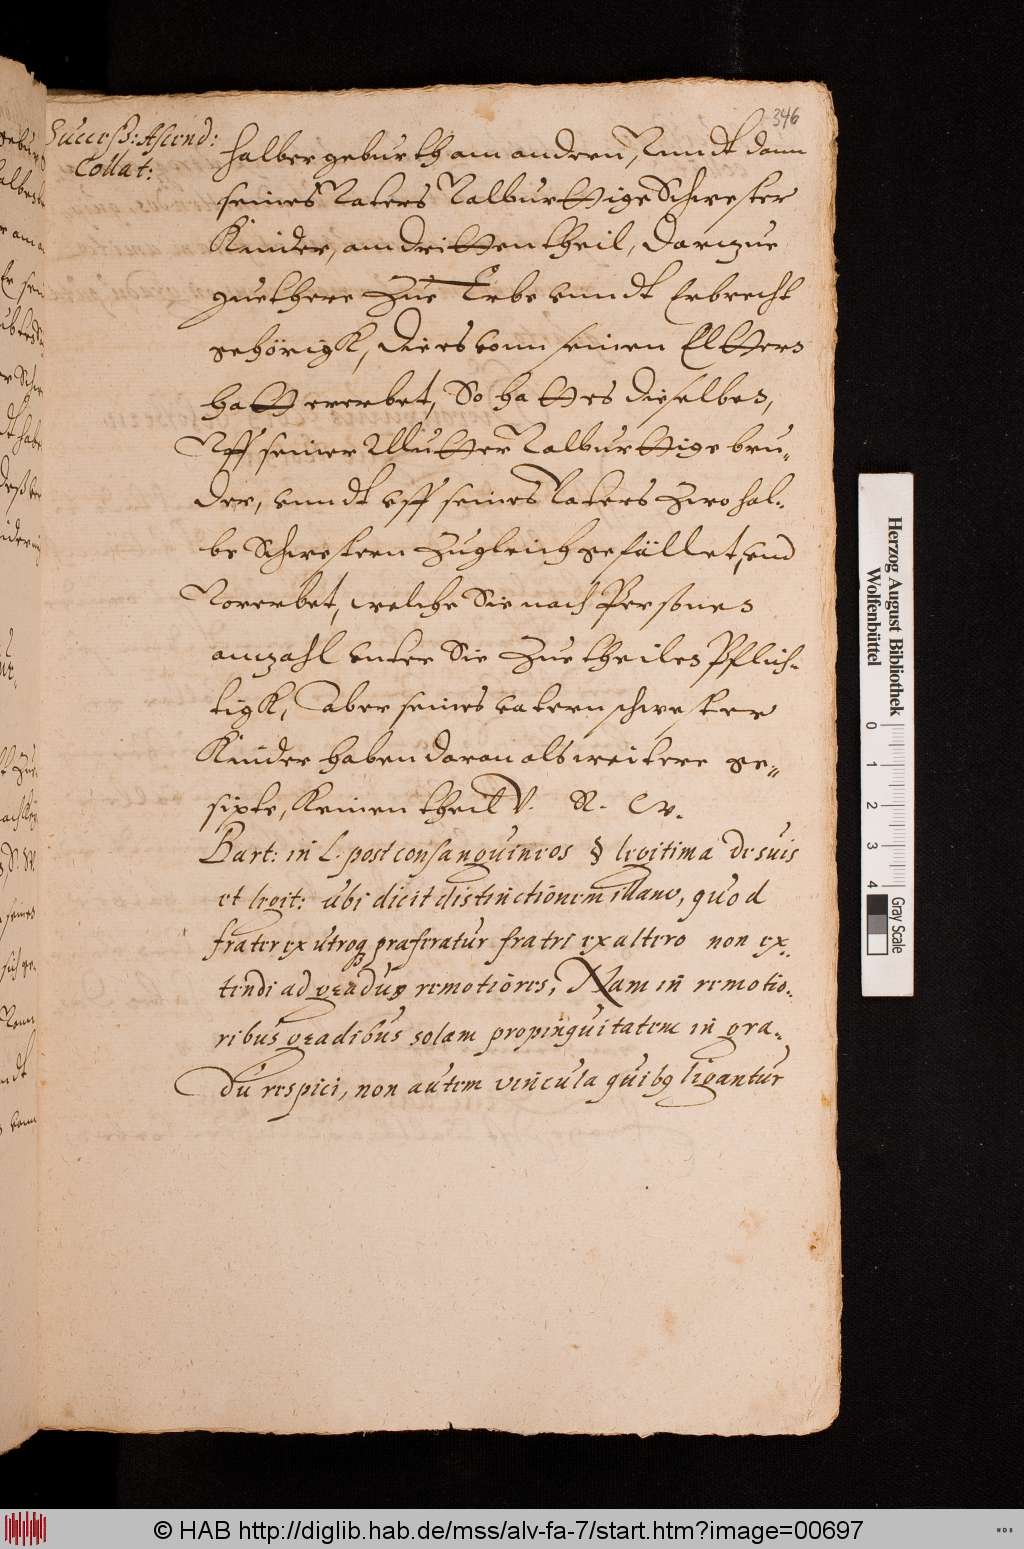 346
Success: Ascend:
Collat:
halber geburth am andern, Vnndt dann
seines Vaters Valburttige Schwester
Kinder, am dritten theil, Darzue
guethere Zue Erbe vnndt Erbrecht
gehörigk, die es vonn seinen Eltters
hatt ererbet, So hatt es dieselben,
Vff seiner Mutter Valburttige bru-
der, vnndt vff seines Vaters zwo hal-
be Schwestern zugleich gefället, vnd
Vorerbet, welche Sie nach Persones
anzahl vnter Sie Zue theilen Pflich-
tigk, Aber seines vatern schwester
Kinder haben daran als weitere ge-
sipte, Keinen theil V. R. W.
Bart: in L. post consanguineos § legitima De suis
et legit: ubi dicit distinctionem illam, quod
frater ex utroq praeferatur fratri ex altero non ex-
tendi ad gradus remotiores, Nam in remotio-
ribus gradibus solam propinquitatem in gra-
du respici, non autem vincula quibq ligantur
Herzog August Bibliothek
Wolfenbüttel
0 1 2 3 4
Gray Scale
© HAB http://diglib.hab.de/mss/alv-fa-7/start.htm?image=00697